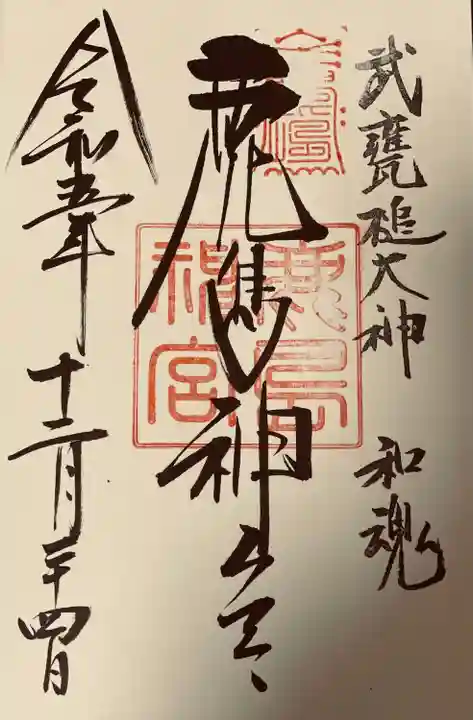 武甕槌大神 和魂
鹿島神宮
鹿島
神宮
令和五年十二月二十四日